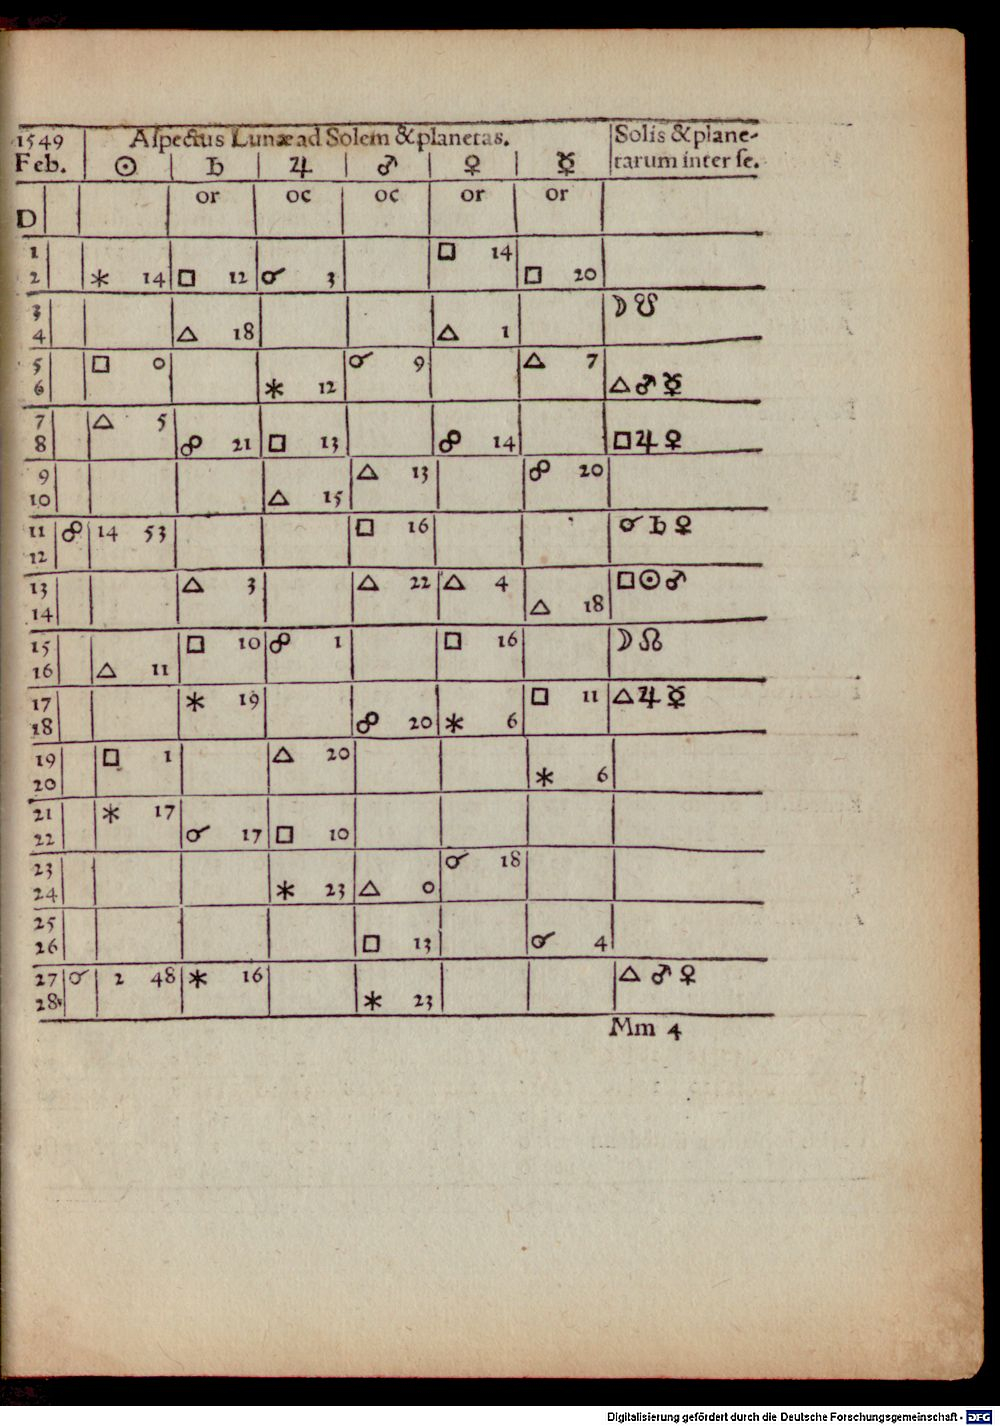 1549 Aſpectus Lunæ ad Solem & planetas. Solis & plane-
Feb. ☉ ♄ ♃ ♂ ♀ ☿ tarum inter ſe.
or oc oc or or
D
1 □ 14
2 ⚹ 14 □ 12 ☌ 3 □ 20
3 ☽ ☋
4 △ 18 △ 1
5 □ 0 ☌ 9 △ 7
6 ⚹ 12 △ ♂ ☿
7 △ 5
8 ☍ 21 □ 13 ☍ 14 □ ♃ ♀
9 △ 13 ☍ 20
10 △ 15
11 ☍ 14 53 □ 16 ☌ ♄ ♀
12
13 △ 3 △ 22 △ 4 □ ☉ ♂
14 △ 18
15 □ 10 ☍ 1 □ 16 ☽ ☊
16 △ 11
17 ⚹ 19 □ 11 △ ♃ ☿
18 ☍ 20 ⚹ 6
19 □ 1 △ 20
20 ⚹ 6
21 ⚹ 17
22 ☌ 17 □ 10
23 ☌ 18
24 ⚹ 23 △ 0
25
26 □ 13 ☌ 4
27 ☌ 2 48 ⚹ 16 △ ♂ ♀
28 ⚹ 23
Mm 4
Digitalisierung gefördert durch die Deutsche Forschungsgemeinschaft - DFG